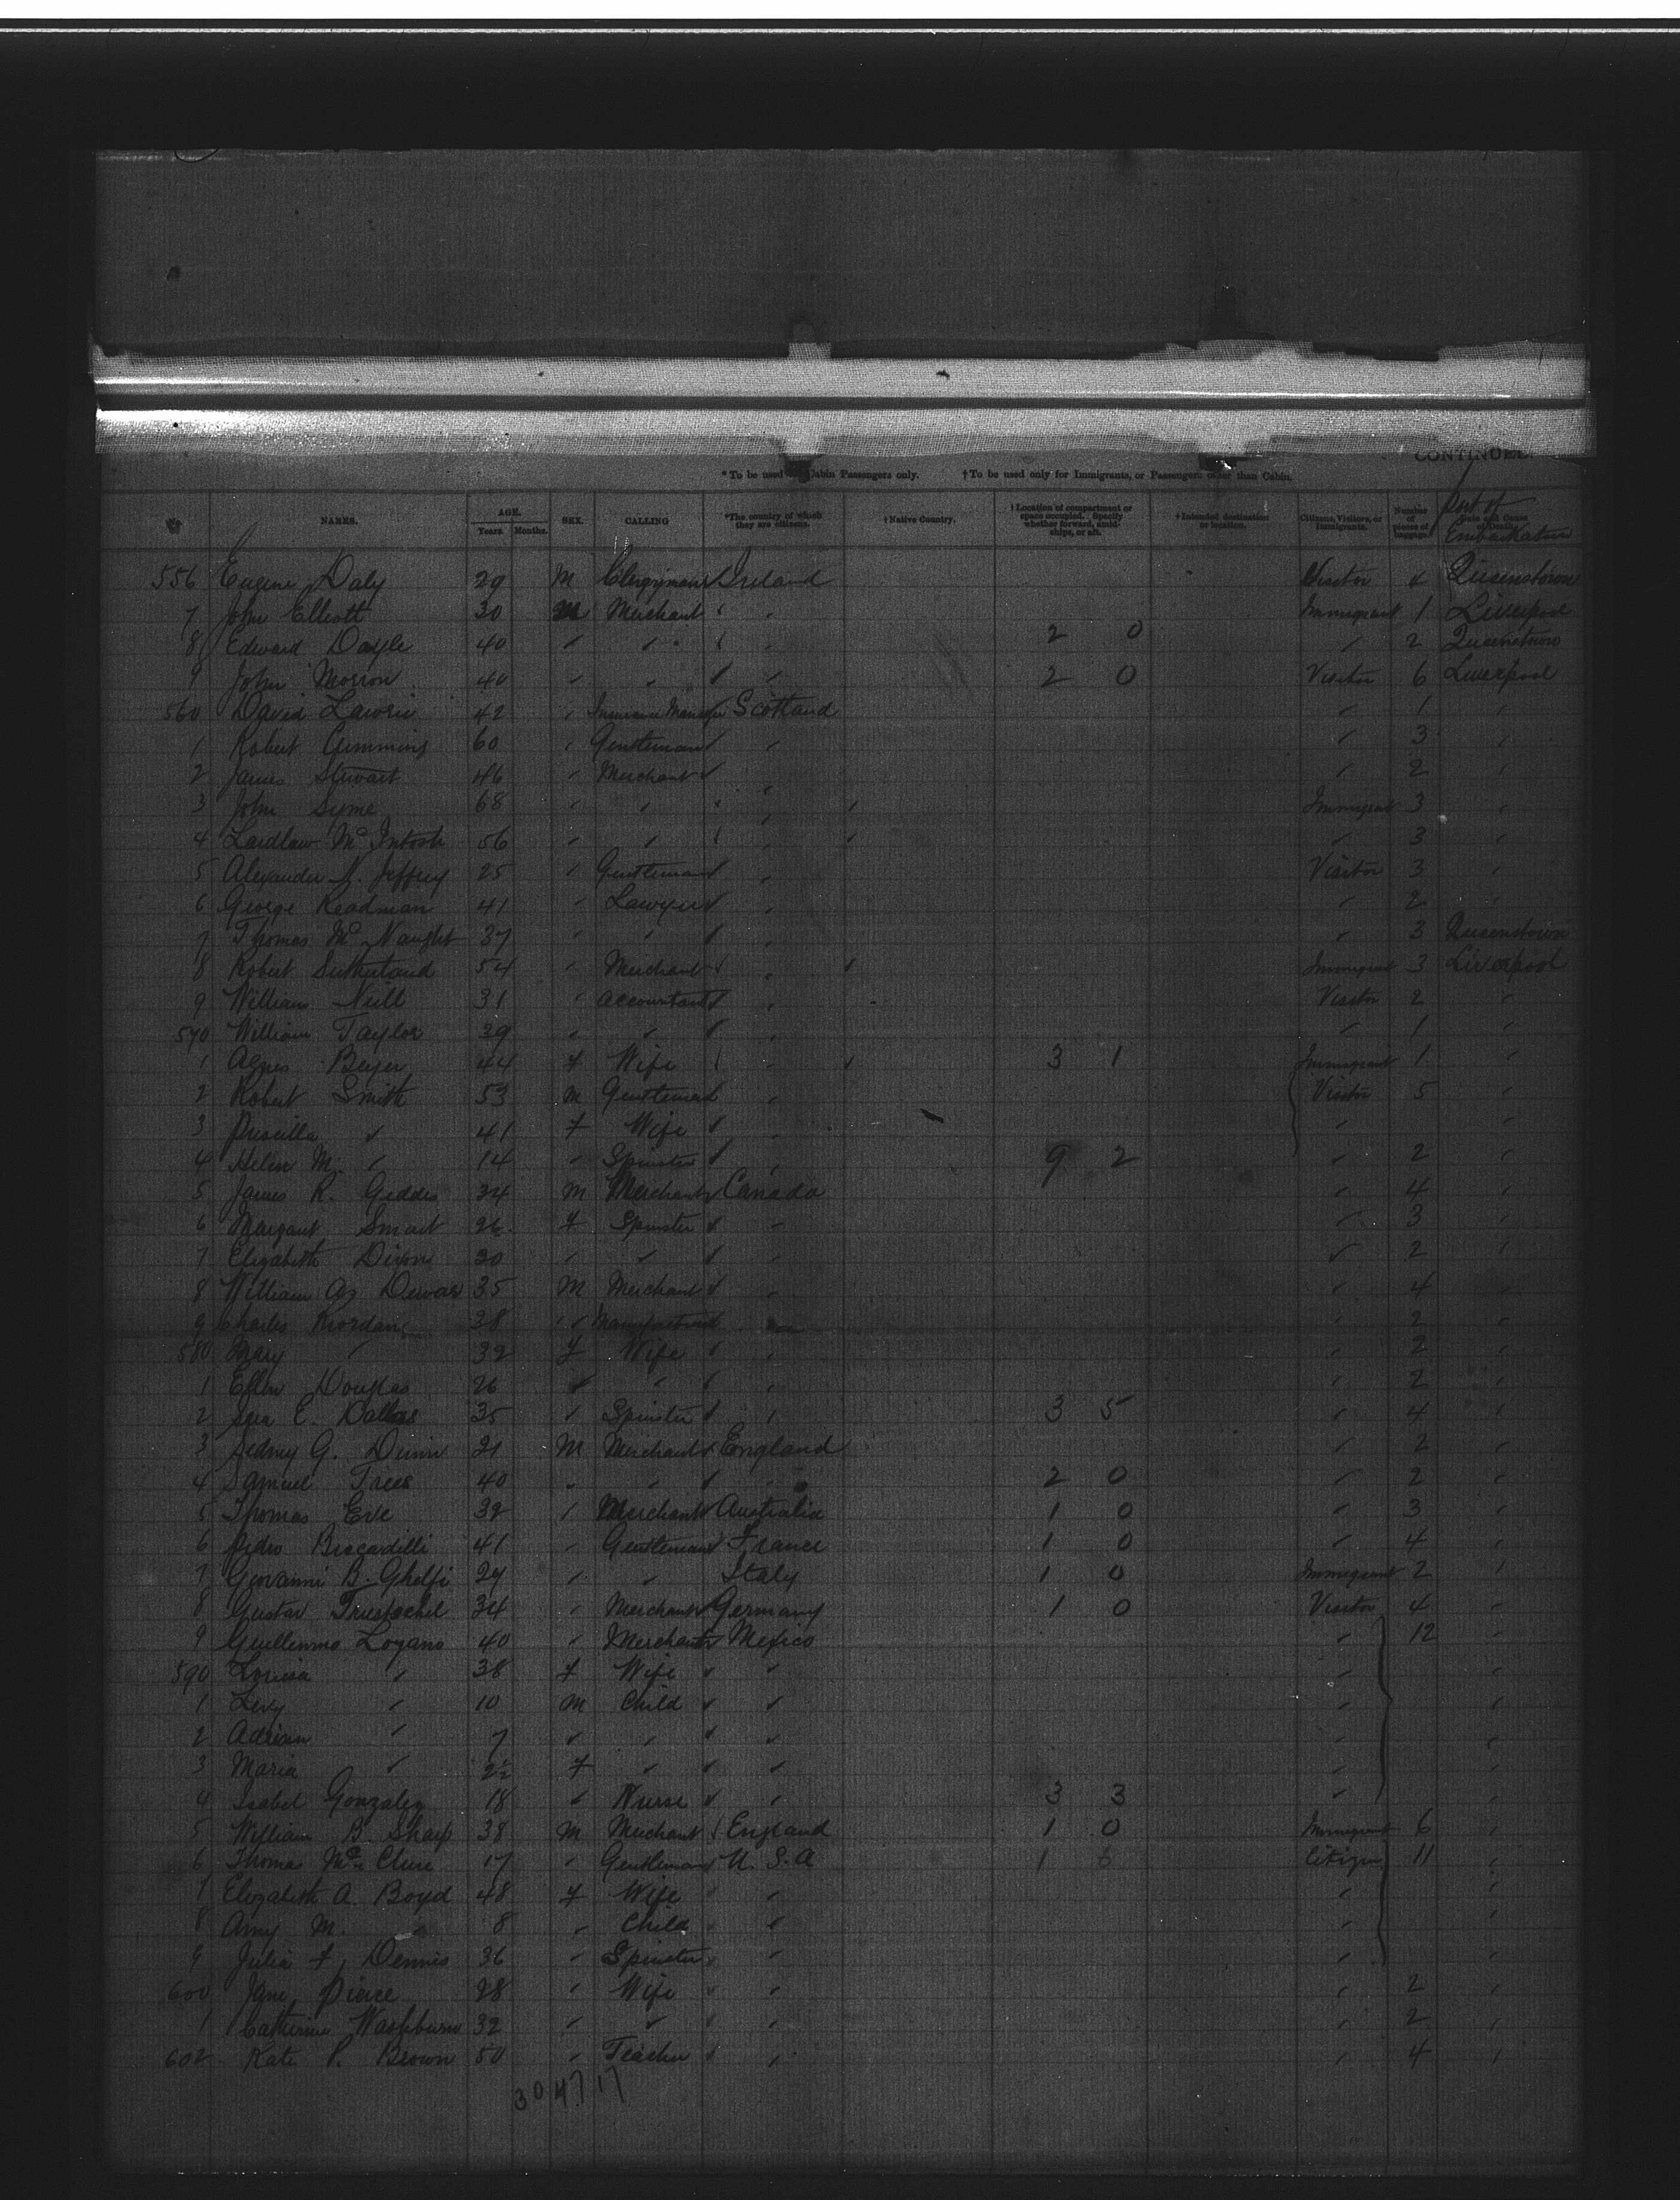 CONTINUED
* To be used Cabin Passengers only. † To be used only for Immigrants, or Passengers other than Cabin.
NAMES. AGE. Years. Months. SEX. CALLING *The country of which they are citizens. †Native Country. †Location of compartment or space occupied. Specify whether forward, amidships, or aft. †Intended destination or location. Citizens, Visitors, or Immigrants. Number of pieces of baggage. Port of Embarkation
556 Eugene Daly 29 M Clergyman Ireland Visitor 4 Queenstown
7 John Elliott 30 M Merchant " Immigrant 1 Liverpool
8 Edward Doyle 40 " " " 2 0 " 2 Queenstown
9 John Morron 40 " " " 2 0 Visitor 6 Liverpool
560 David Lawrie 42 " Insurance Manager Scotland " 1 "
1 Robert Cumming 60 " Gentleman " " 3 "
2 James Stewart 46 " Merchant " " 2 "
3 John Syme 68 " " " Immigrant 3 "
4 Laidlaw McIntosh 56 " " " " 3 "
5 Alexander N. Jeffrey 25 " Gentleman " Visitor 3 "
6 George Readman 41 " Lawyer " " 2 "
7 Thomas McNaught 37 " " " " 3 Queenstown
8 Robert Sutherland 54 " Merchant " Immigrant 3 Liverpool
9 William Neill 31 " Accountant " Visitor 2 "
570 William Taylor 39 " " " " 1 "
1 Agnes Beyer 44 F Wife " 3 1 Immigrant 1 "
2 Robert Smith 53 M Gentleman " Visitor 5 "
3 Priscilla " 41 F Wife " " "
4 Helen M. " 14 " Spinster " 9 2 " 2 "
5 James R. Geddes 34 M Merchant Canada " 4 "
6 Margaret Smart 26 F Spinster " " 3 "
7 Elizabeth Dixon 30 " " " " 2 "
8 William Dewar 35 M Merchant " " 4 "
9 Charles Riordan 38 " Manufacturer " " 2 "
580 Mary " 32 F Wife " " 2 "
1 Ellen Douglas 26 " " " " 2 "
2 E. Dallas 35 " Spinster " 3 5 " 4 "
3 Sidney G. Dunn 21 M Merchant England " 2 "
4 Samuel Trees 40 " " " 2 0 " 2 "
5 Thomas Eve 32 " Merchant Australia 1 0 " 3 "
6 41 " Gentleman France 1 0 " 4 "
7 Giovanni B. Ghelfi 27 " " Italy 1 0 Immigrant 2 "
8 Gustav 34 " Merchant Germany 1 0 Visitor 4 "
9 Guillermo Lozano 40 " Merchant Mexico " 12 "
590 Louisa " 38 F Wife " " "
1 Levy " 10 M Child " " "
2 Adrian " 7 " " " " "
3 Maria " 2½ F " " " "
4 Isabel Gonzalez 18 " Nurse " 3 3 " "
5 William B. Sharp 38 M Merchant England 1 0 Immigrant 6 "
6 Thomas McClure 17 " Gentleman U.S.A 1 6 Citizen 11 "
7 Elizabeth A. Boyd 48 F Wife " " "
8 Amy M. " 8 " Child " " "
9 Julia F. Dennis 36 " Spinster " " "
600 Jane Pierce 28 " Wife " " 2 "
1 Catherine Washburn 32 " " " " 2 "
602 Kate P. Brown 50 " Teacher " " 4 "
304717